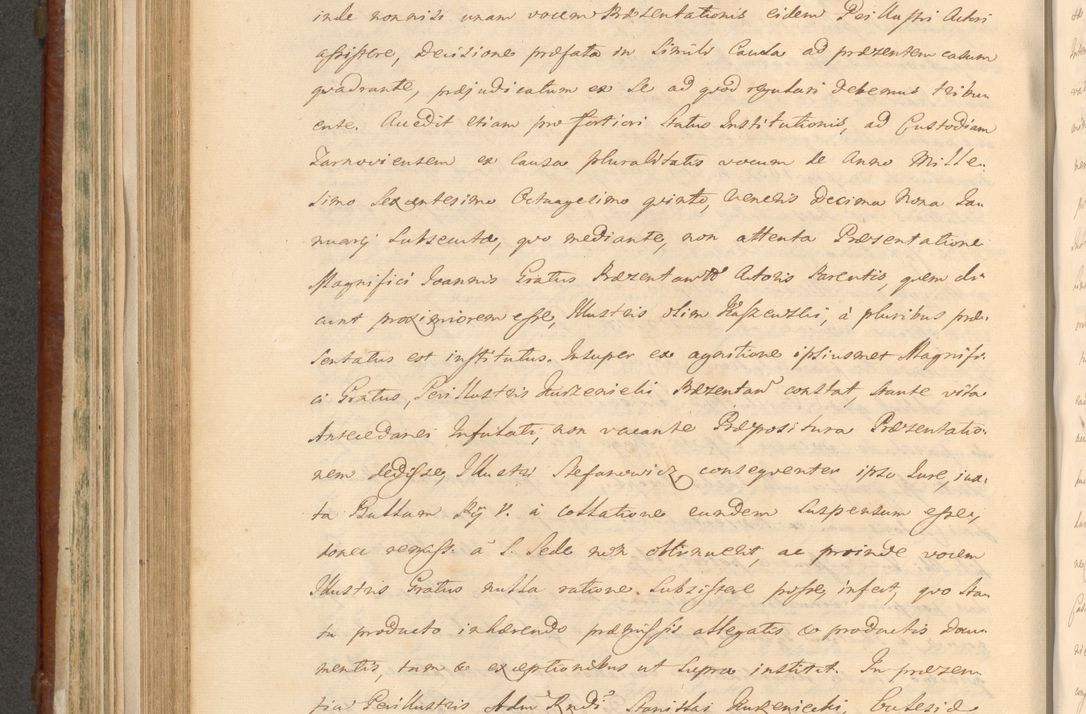 inde nonnisi unam vocem Præsentationis eidem Perillustri Actori
assistere, Decisione præfata in Simili Causa ad præzentem casum
quadrante, præjudicatum ex Se ad quod regulari debemus tribu-
ente. Accedit etiam pro fortiori Status Institutionis, ad Custodiam
Tarnoviensem ex causa pluralitatis vocum de Anno Mille-
simo Sexcentesimo Octuagesimo quinto, Veneris Decima Nona Ja-
nuarij Subsecuta, quo mediante, non attenta Præsentatione
Magnifici Joannis Gratus Præzentan Actoris Parentis, quem di-
cunt proximiorem esse, Illustris olim Kaszewski, à pluribus præ-
sentatus est institutus. Insuper ex agnitione ipsiusmet Magnifi-
ci Gratus, Perillustris Kurzeniecki Præzentan constat, stante vita
Antecedanei Infulati, non vacante Præpositura Præzentatio-
nem dedisse, Illustri Stefanowicz consequenter ipso Jure, jux-
ta Bullam Pij V. à collatione eundem Suspensum esse,
donec remiss. à S. Sede non obtinuerit, ac proinde vocem
Illustris Gratus nulla ratione Subsistere posse, infert, quo Sta-
tu producto inhærendo præmissis allegatis & productis Docu-
mentis, tum & exceptionibus ut Supra institit. In præzen-
tia Perillustris Adm Rndi Stanislai Kurzeniecki,